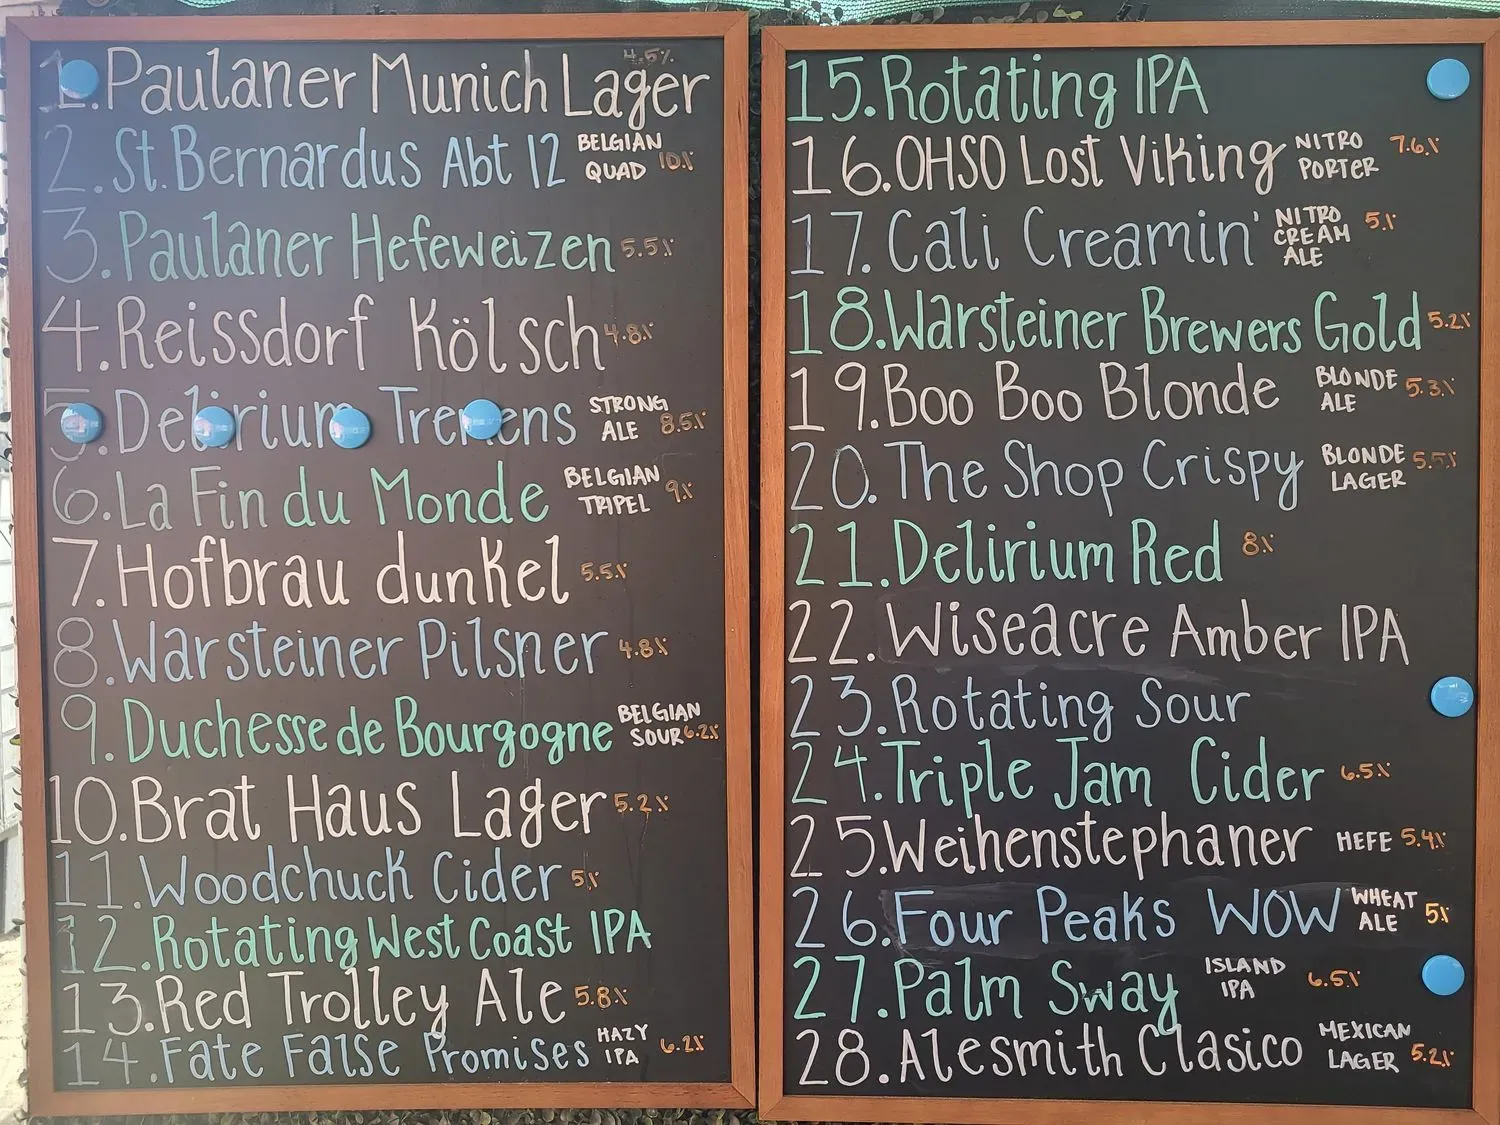 4.5%
1. Paulaner Munich Lager
2. St. Bernardus Abt 12 BELGIAN QUAD 10%
3. Paulaner Hefeweizen 5.5%
4. Reissdorf Kölsch 4.8%
5. Delirium Tremens STRONG ALE 8.5%
6. La Fin du Monde BELGIAN TRIPEL 9%
7. Hofbrau dunkel 5.5%
8. Warsteiner Pilsner 4.8%
9. Duchesse de Bourgogne BELGIAN SOUR 6.2%
10. Brat Haus Lager 5.2%
11. Woodchuck Cider 5%
12. Rotating West Coast IPA
13. Red Trolley Ale 5.8%
14. Fate False Promises HAZY IPA 6.2%
15. Rotating IPA
16. OHSO Lost Viking NITRO PORTER 7.6%
17. Cali Creamin' NITRO CREAM ALE 5%
18. Warsteiner Brewers Gold 5.2%
19. Boo Boo Blonde BLONDE ALE 5.3%
20. The Shop Crispy BLONDE LAGER 5.5%
21. Delirium Red 8%
22. Wiseacre Amber IPA
23. Rotating Sour
24. Triple Jam Cider 6.5%
25. Weihenstephaner HEFE 5.4%
26. Four Peaks WOW WHEAT ALE 5%
27. Palm Sway ISLAND IPA 6.5%
28. Alesmith Clasico MEXICAN LAGER 5.2%